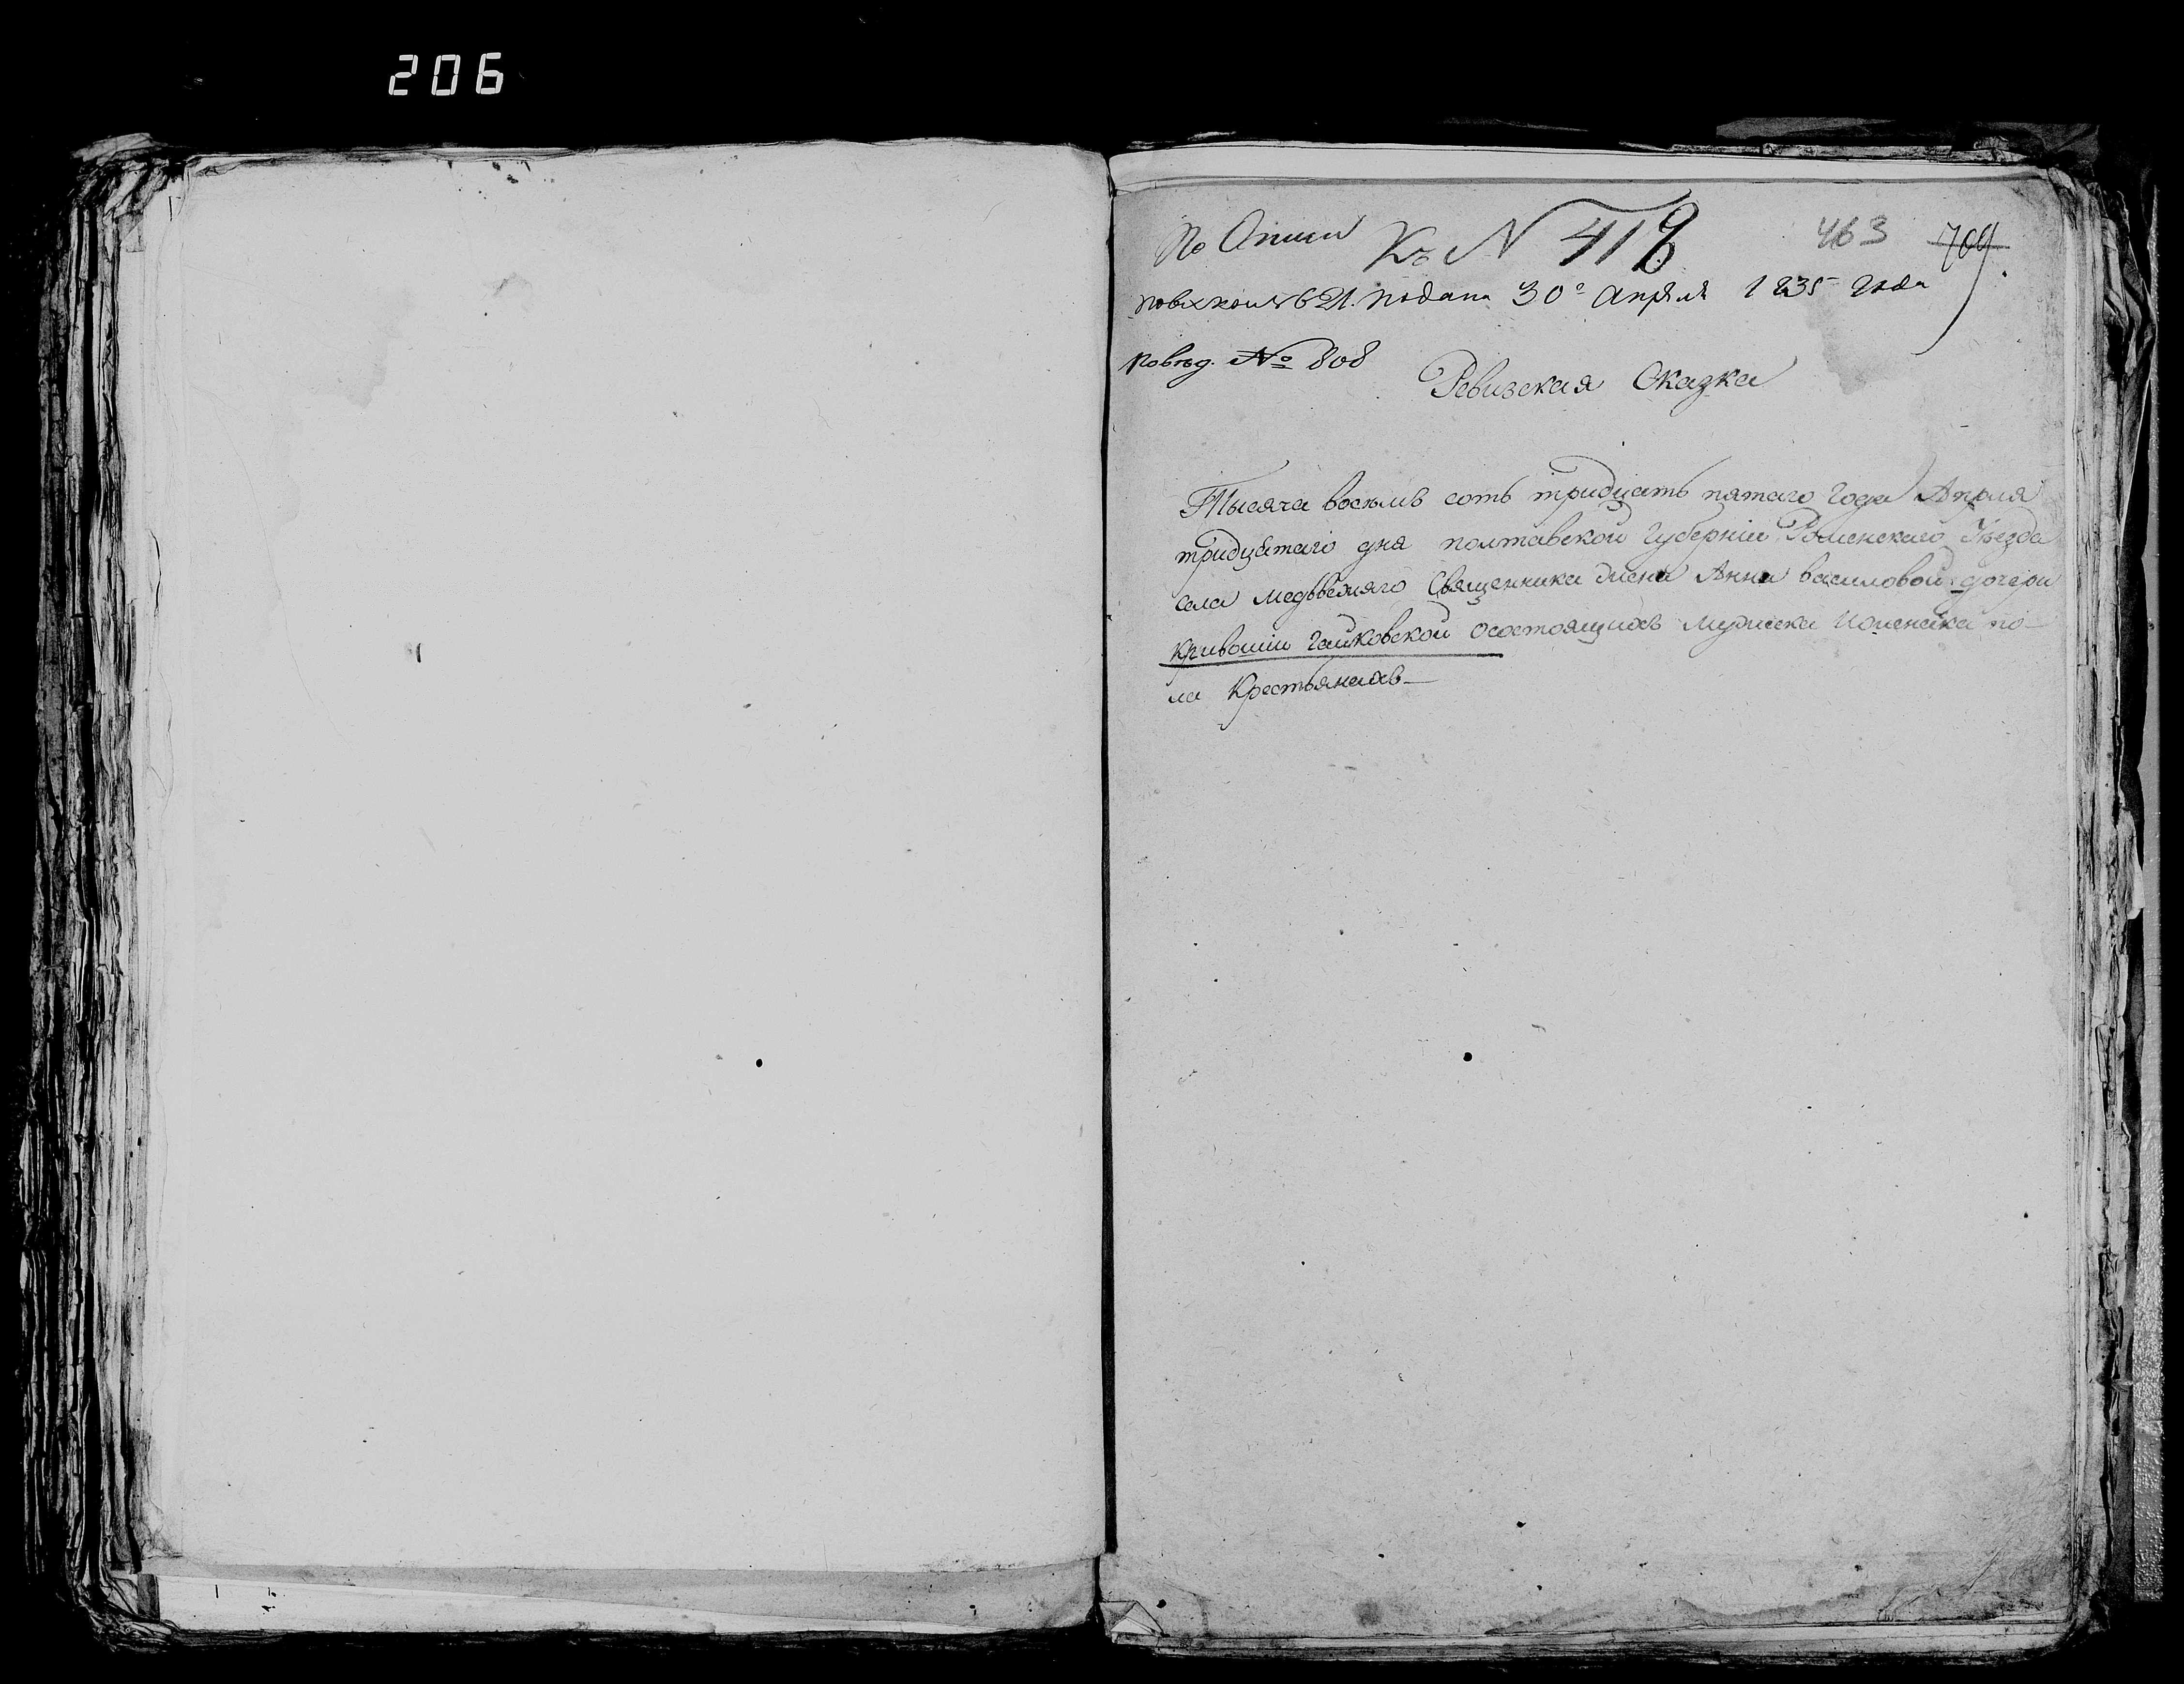 206
По Описи Къ N 418 463 709
подана 30º Апреля 1835 года
№ 808
Ревизская Сказка
Тысяча восемь сотъ тридцать пятаго года Апреля
тридцятаго дня полтавской Губерніи Роменскаго Уезда
села медвежяго Священника жена Анна василовой дочери
гайковской осостоящихъ мужеска и женска по-
ла Крестьянахъ